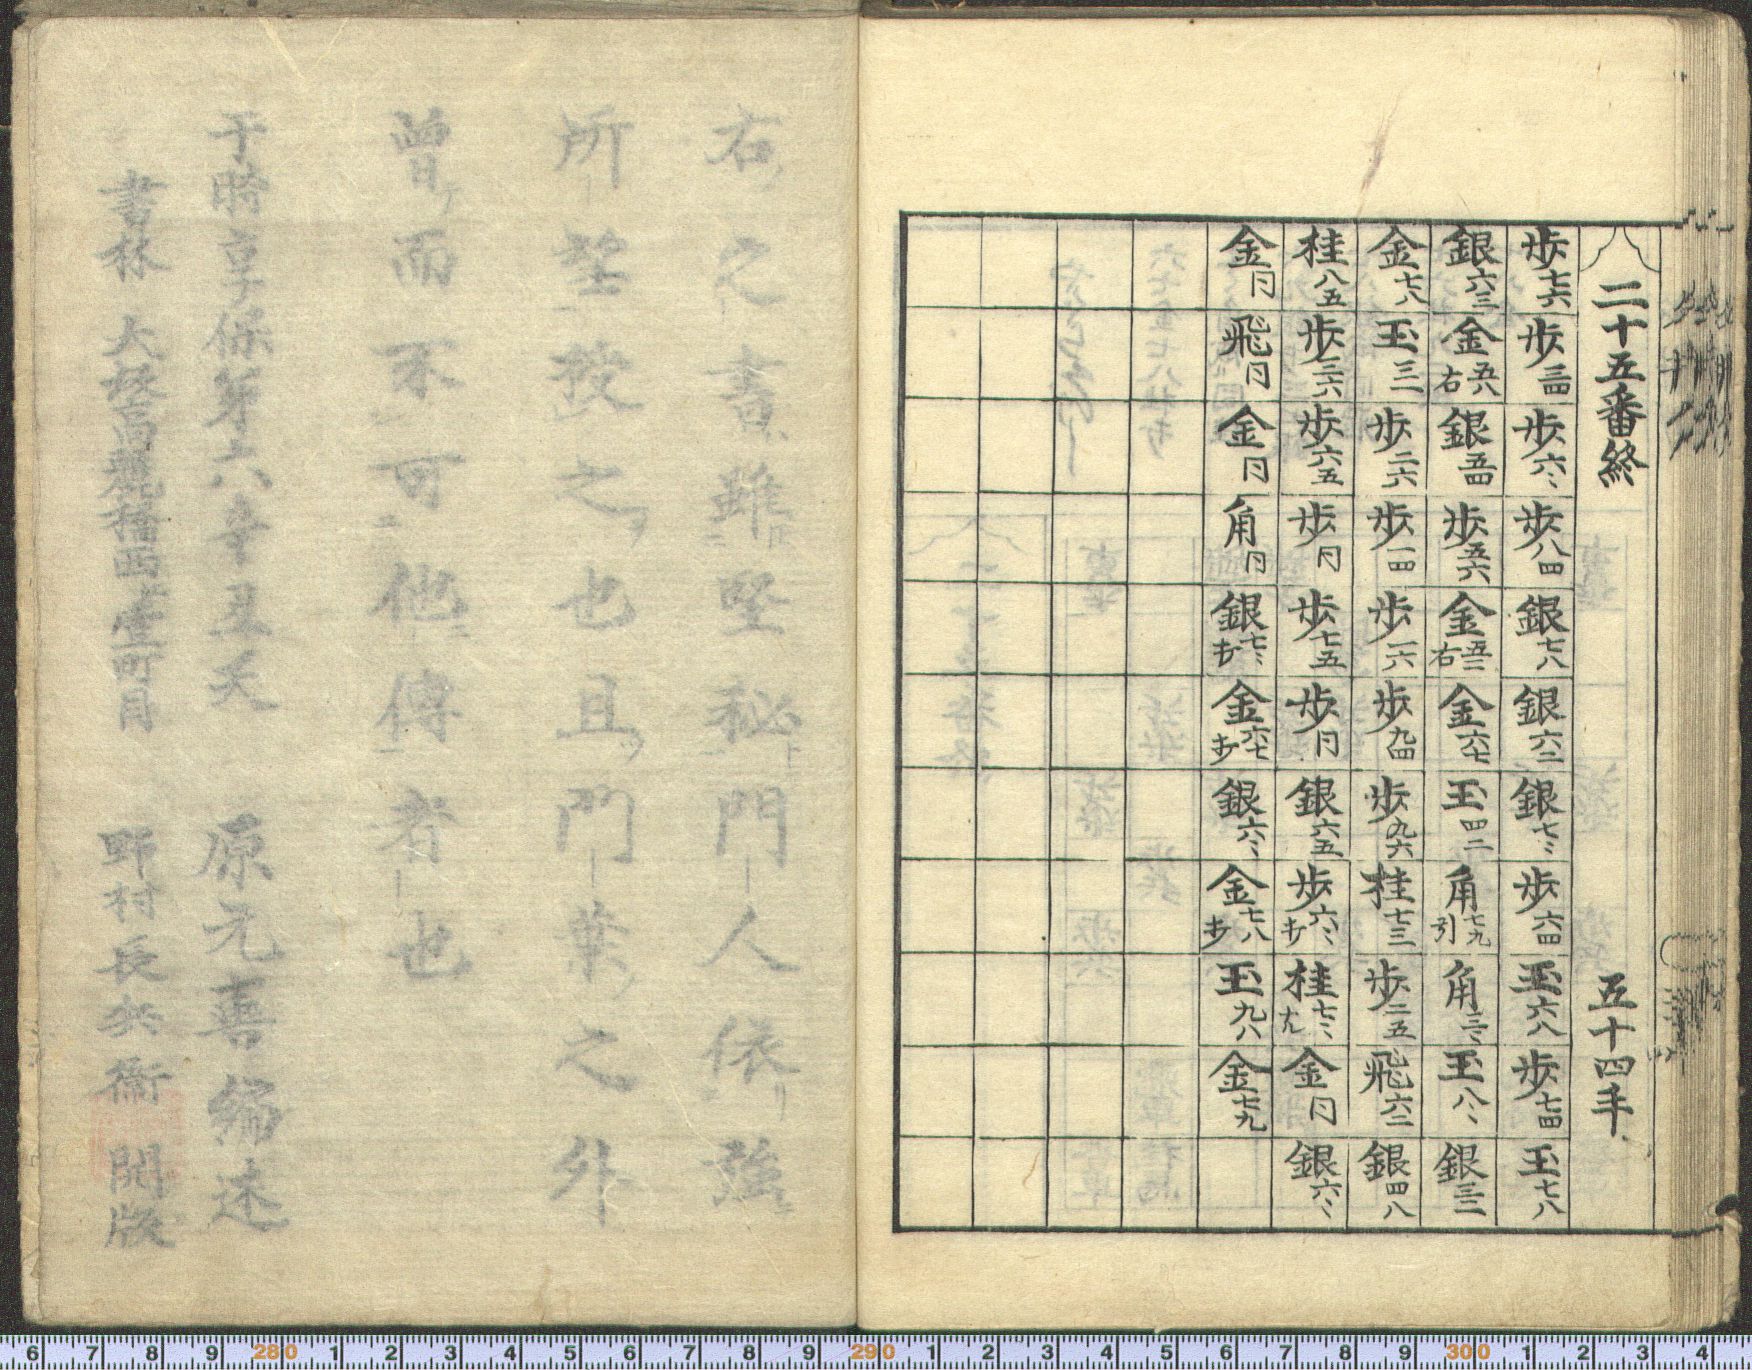 二十五番終 五十四手
歩七六 歩三四 歩六〻 歩八四 銀七八 銀六二 銀七〻 歩六四 玉六八 歩七四 玉七八
銀六三 金五八右 銀五四 歩五六 金五二右 金六七 玉四二 角七九引 角三〻 玉八〻 銀三二
金七八 玉三一 歩二六 歩一四 歩一六 歩九四 歩九六 桂七三 歩二五 飛六二 銀四八
桂八五 歩三六 歩六五 歩同 歩七五 歩同 銀六五 歩六〻打 桂七〻 金同 銀六〻
金同 飛同 金同 角同 銀七〻打 金六七打 銀六〻 金七八打 玉九八 金七九
右之書雖堅秘門人依強
所望授之也且門葉之外
曽而不可他傳者也
于時享保第六辛丑天 原元善編述
書林 大坂高麗橋西壹町目 野村長兵衛 開版